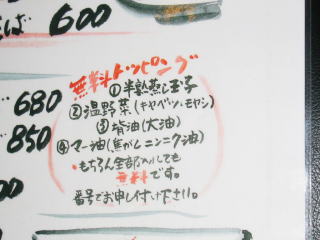 ば 600
680
850
00
無料トッピング
①半熟蒸し玉子
②温野菜(キャベツ・モヤシ)
③背油(大油)
④マー油(焦がしニンニク油)
・もちろん全部入れても
無料です。
番号でお申し付け下さい。